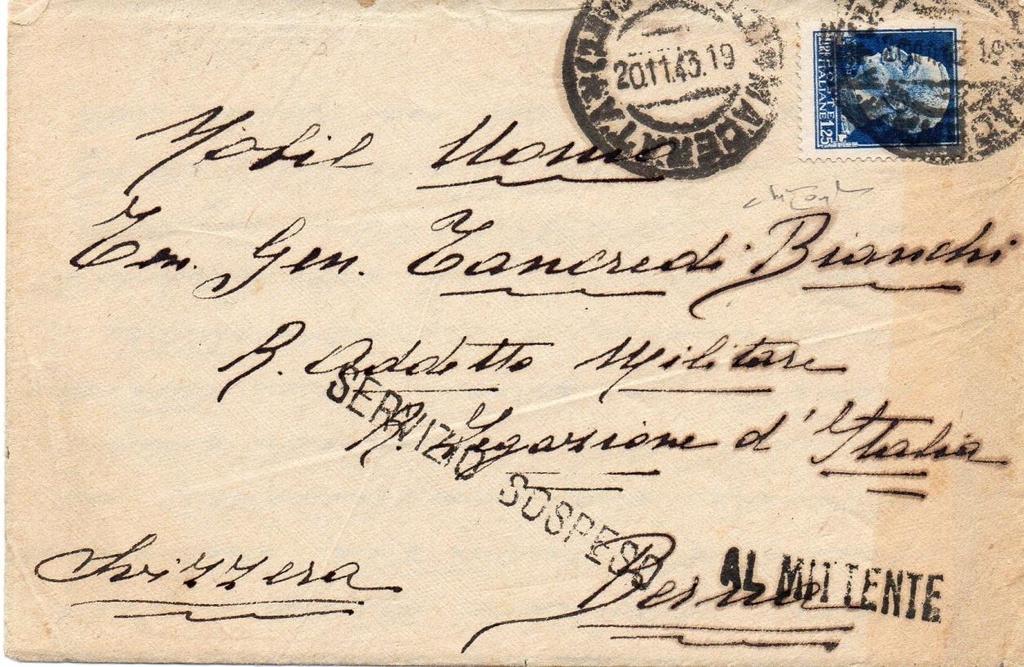 MACERATA
20.11.43.19
POSTE ITALIANE
1,25
Nobil Uomo
Ten. Gen. Tancredi Bianchi
R. Addetto Militare
R. Legazione d'Italia
SERVIZIO SOSPESO
Berna
AL MITTENTE
Svizzera